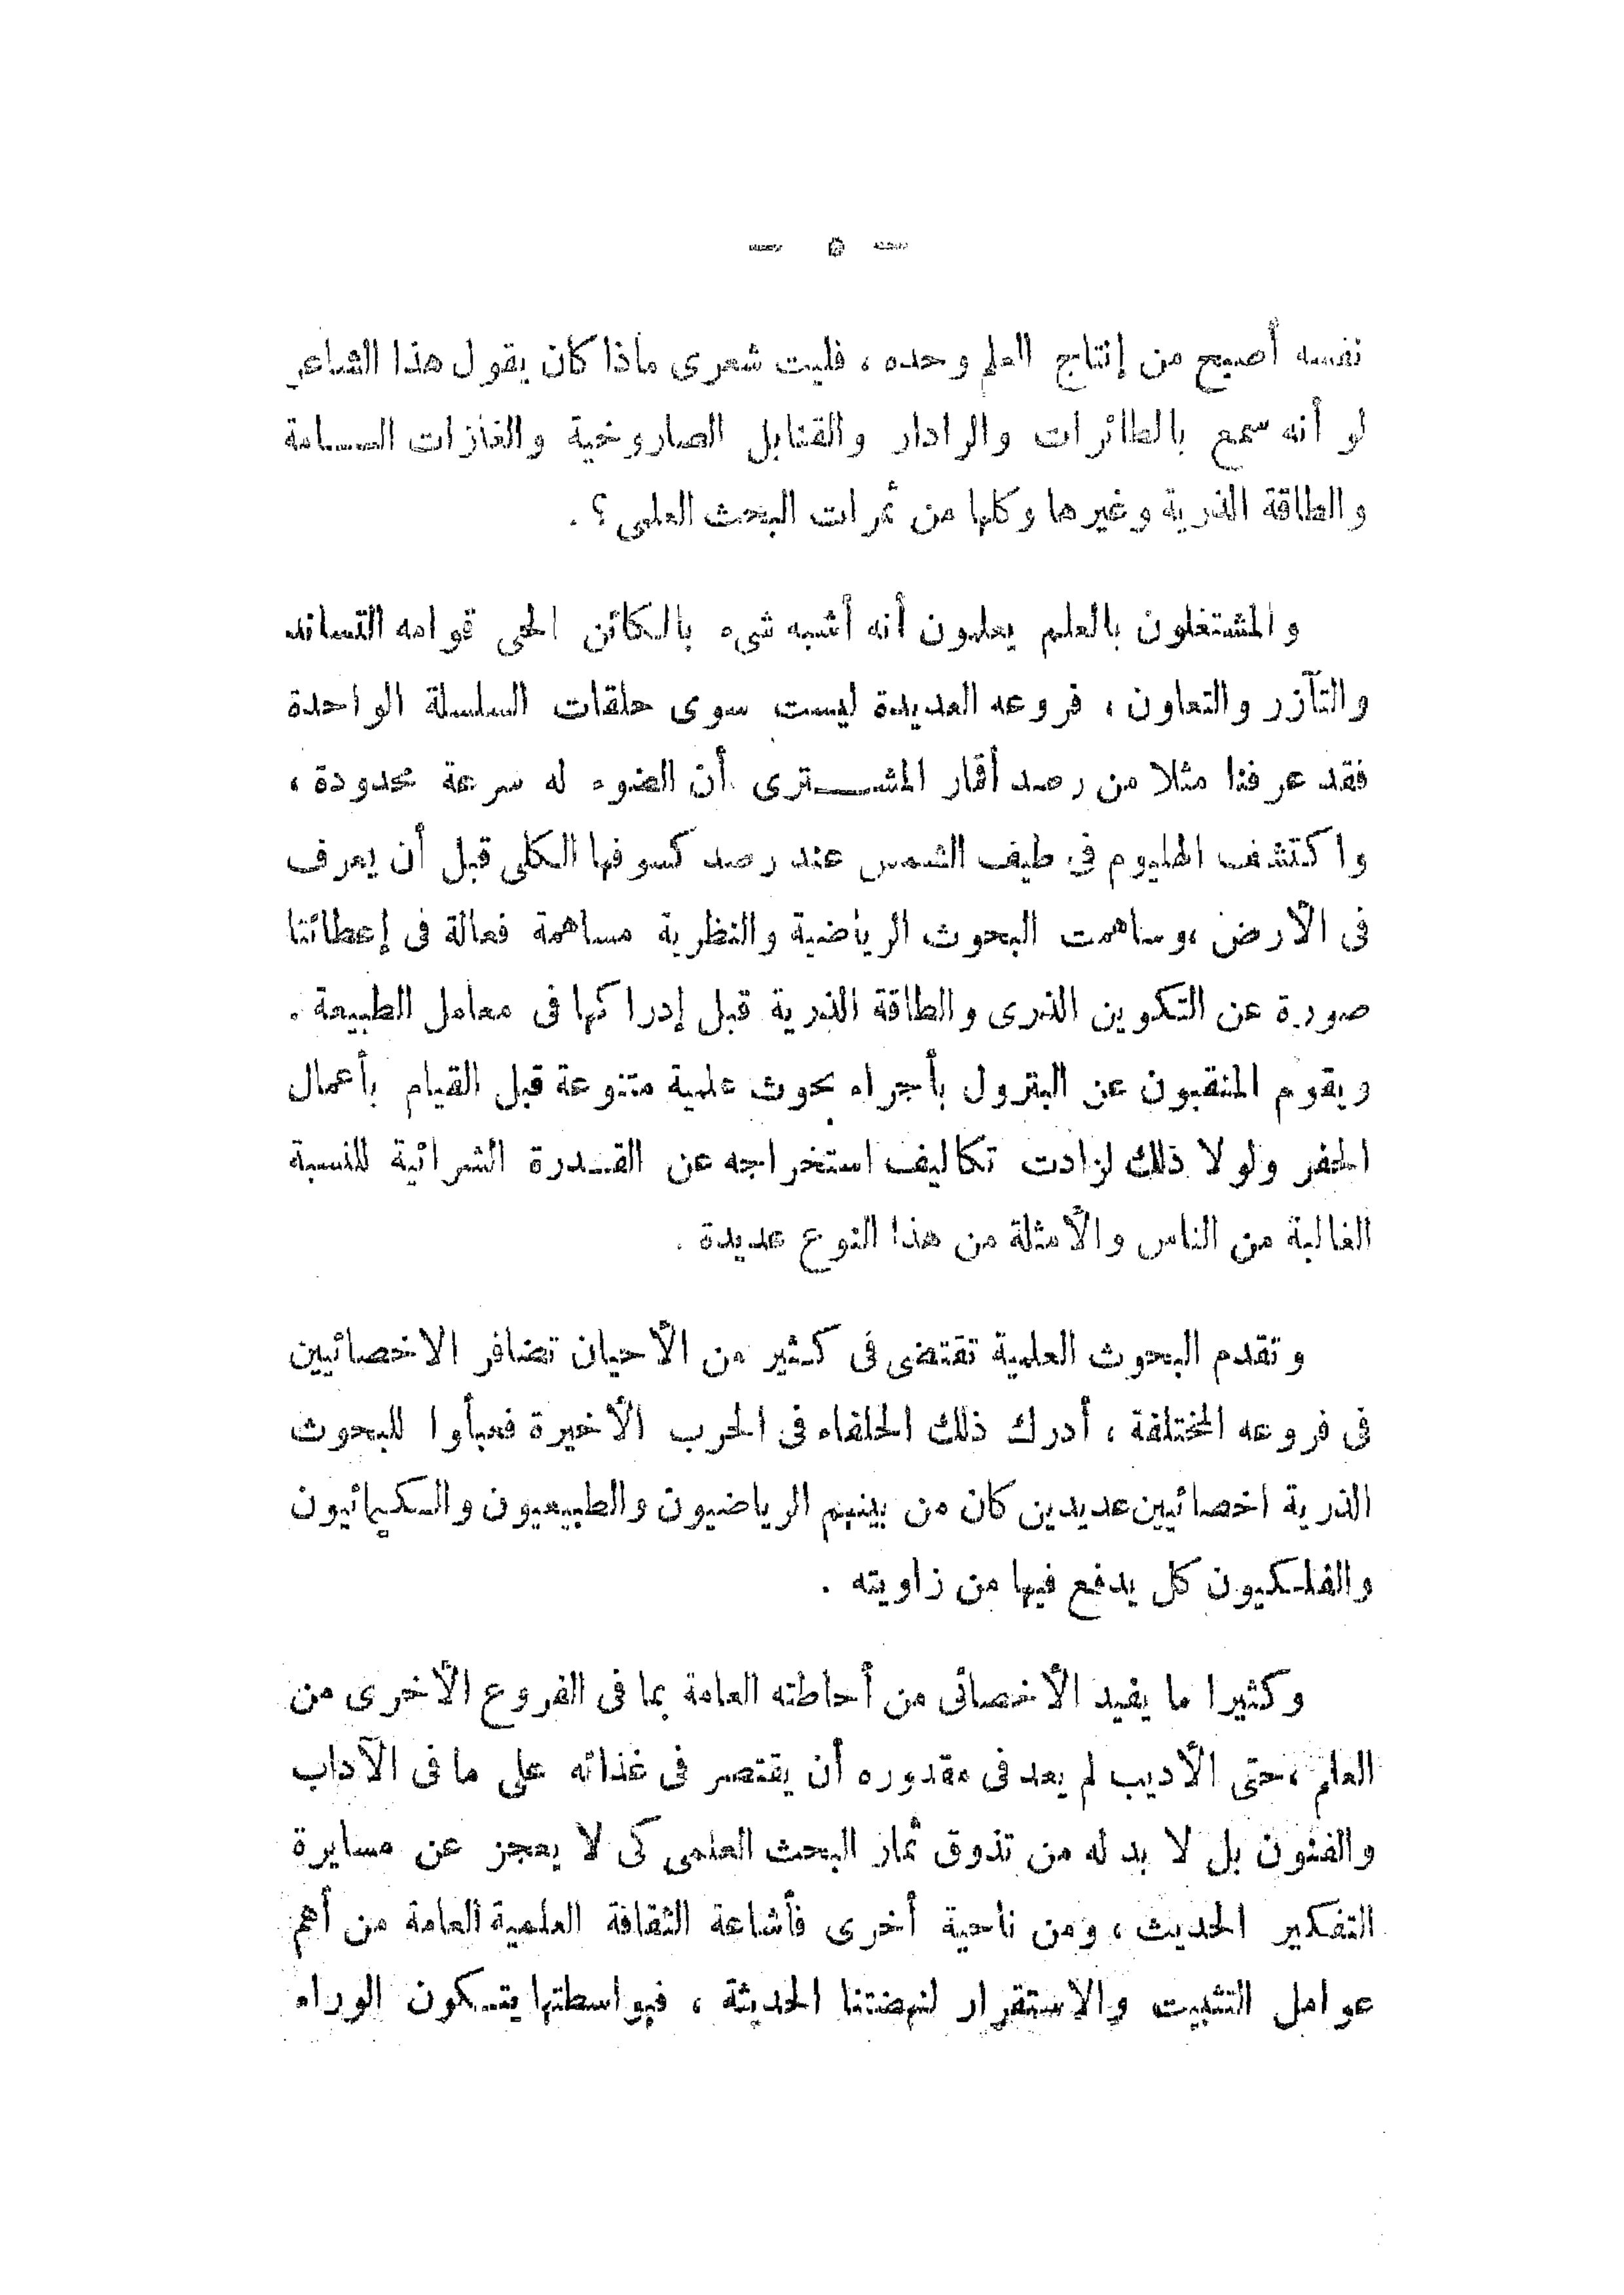 — ٥ —
نفسه أصبح من إنتاج العلم وحده ، فليت شعرى ماذا كان يقول هذا الشاعر
لو أنه سمع بالطائرات والرادار والقنابل الصاروخية والغازات السامة
والطاقة الذرية وغيرها وكلها من ثمرات البحث العلمى ؟ .
والمشتغلون بالعلم يعلمون أنه أشبه شىء بالكائن الحى قوامه التساند
والتآزر والتعاون ، فروعه العديدة ليست سوى حلقات السلسلة الواحدة
فقد عرفنا مثلا من رصد أقمار المشترى أن الضوء له سرعة محدودة ،
واكتشف الهليوم فى طيف الشمس عند رصد كسوفها الكلى قبل أن يعرف
فى الأرض ،وساهمت البحوث الرياضية والنظرية مساهمة فعالة فى إعطائنا
صورة عن التكوين الذرى والطاقة الذرية قبل إدراكها فى معامل الطبيعة .
ويقوم المنقبون عن البترول بأجراء بحوث علمية متنوعة قبل القيام بأعمال
الحفر ولولا ذلك لزادت تكاليف استخراجه عن القدرة الشرائية للنسبة
الغالبة من الناس والأمثلة من هذا النوع عديدة .
وتقدم البحوث العلمية تقتضى فى كثير من الأحيان تضافر الاخصائيين
فى فروعه المختلفة ، أدرك ذلك الحلفاء فى الحرب الأخيرة فعبأوا للبحوث
الذرية اخصائيين عديدين كان من بينهم الرياضيون والطبيعيون والكيمائيون
والفلكيون كل يدفع فيها من زاويته .
وكثيرا ما يفيد الأخصائى من أحاطته العامة بما فى الفروع الأخرى من
العلم ،حتى الأديب لم يعد فى مقدوره أن يقتصر فى غذائه على ما فى الآداب
والفنون بل لا بد له من تذوق ثمار البحث العلمى كى لا يعجز عن مسايرة
التفكير الحديث ، ومن ناحية أخرى فأشاعة الثقافة العلمية العامة من أهم
عوامل التثبيت والاستقرار لنهضتنا الحديثة ، فبواسطتها يتكون الوراء